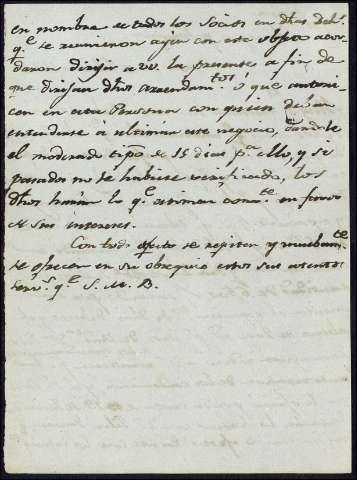 en nombre de todos los socios en dhas del
q.e se reunieron ayer con este objeto acor-
daron dirijir a VV. la presente a fin de
que dirijan dhos arrendam.tos ó que autori-
cen en esta Persona con quien devan
entenderse a ultimar este negocio, dandole
el moderado tipo de 15 dias p.a ello, y si
pasados no se hubiese verificado, los
dhos harán lo q.e estiman com.te en favor
de sus intereses.
Con todo afecto se repiten y nuebam.te
se ofrecen en su obsequio estos sus atentos
serv.s q.e S. M. B.